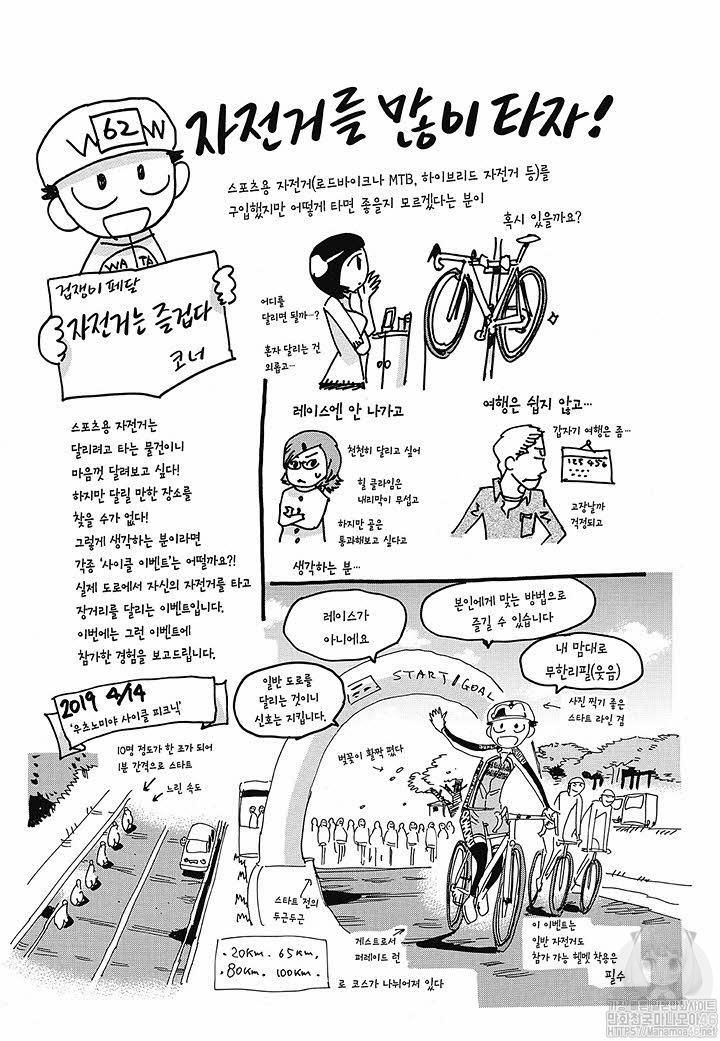 W 62 W
자전거를 많이 타자!
스포츠용 자전거(로드바이크나 MTB, 하이브리드 자전거 등)를
구입했지만 어떻게 타면 좋을지 모르겠다는 분이
혹시 있을까요?
WA TA
겁쟁이 페달
자전거는 즐겁다
코너
어디를
달리면 될까…?
혼자 달리는 건
외롭고…
스포츠용 자전거는
달리려고 타는 물건이니
마음껏 달려보고 싶다!
하지만 달릴 만한 장소를
찾을 수가 없다!
그렇게 생각하는 분이라면
각종 '사이클 이벤트'는 어떨까요?!
실제 도로에서 자신의 자전거를 타고
장거리를 달리는 이벤트입니다.
이번에는 그런 이벤트에
참가한 경험을 보고드립니다.
레이스엔 안 나가고
천천히 달리고 싶어
힐 클라임은
내리막이 무섭고
하지만 골은
통과해보고 싶다고
생각하는 분…
여행은 쉽지 않고…
갑자기 여행은 좀…
123456
고장날까
걱정되고
레이스가
아니에요
본인에게 맞는 방법으로
즐길 수 있습니다
내 맘대로
무한리필(웃음)
일반 도로를
달리는 것이니
신호는 지킵니다.
START/GOAL
사진 찍기 좋은
스타트 라인 겸
2019 4/14
'우츠노미야 사이클 피크닉'
10명 정도가 한 조가 되어
1분 간격으로 스타트
느린 속도
벚꽃이 활짝 폈다
스타트 전의
두근두근
게스트로서
퍼레이드 런
이 이벤트는
일반 자전거도
참가 가능 헬멧 착용은
필수
·20Km. 65Km.
·80Km. 100Km.
로 코스가 나뉘어져 있다
만화천국마나모아46
HTTPS://Manamoa46.net